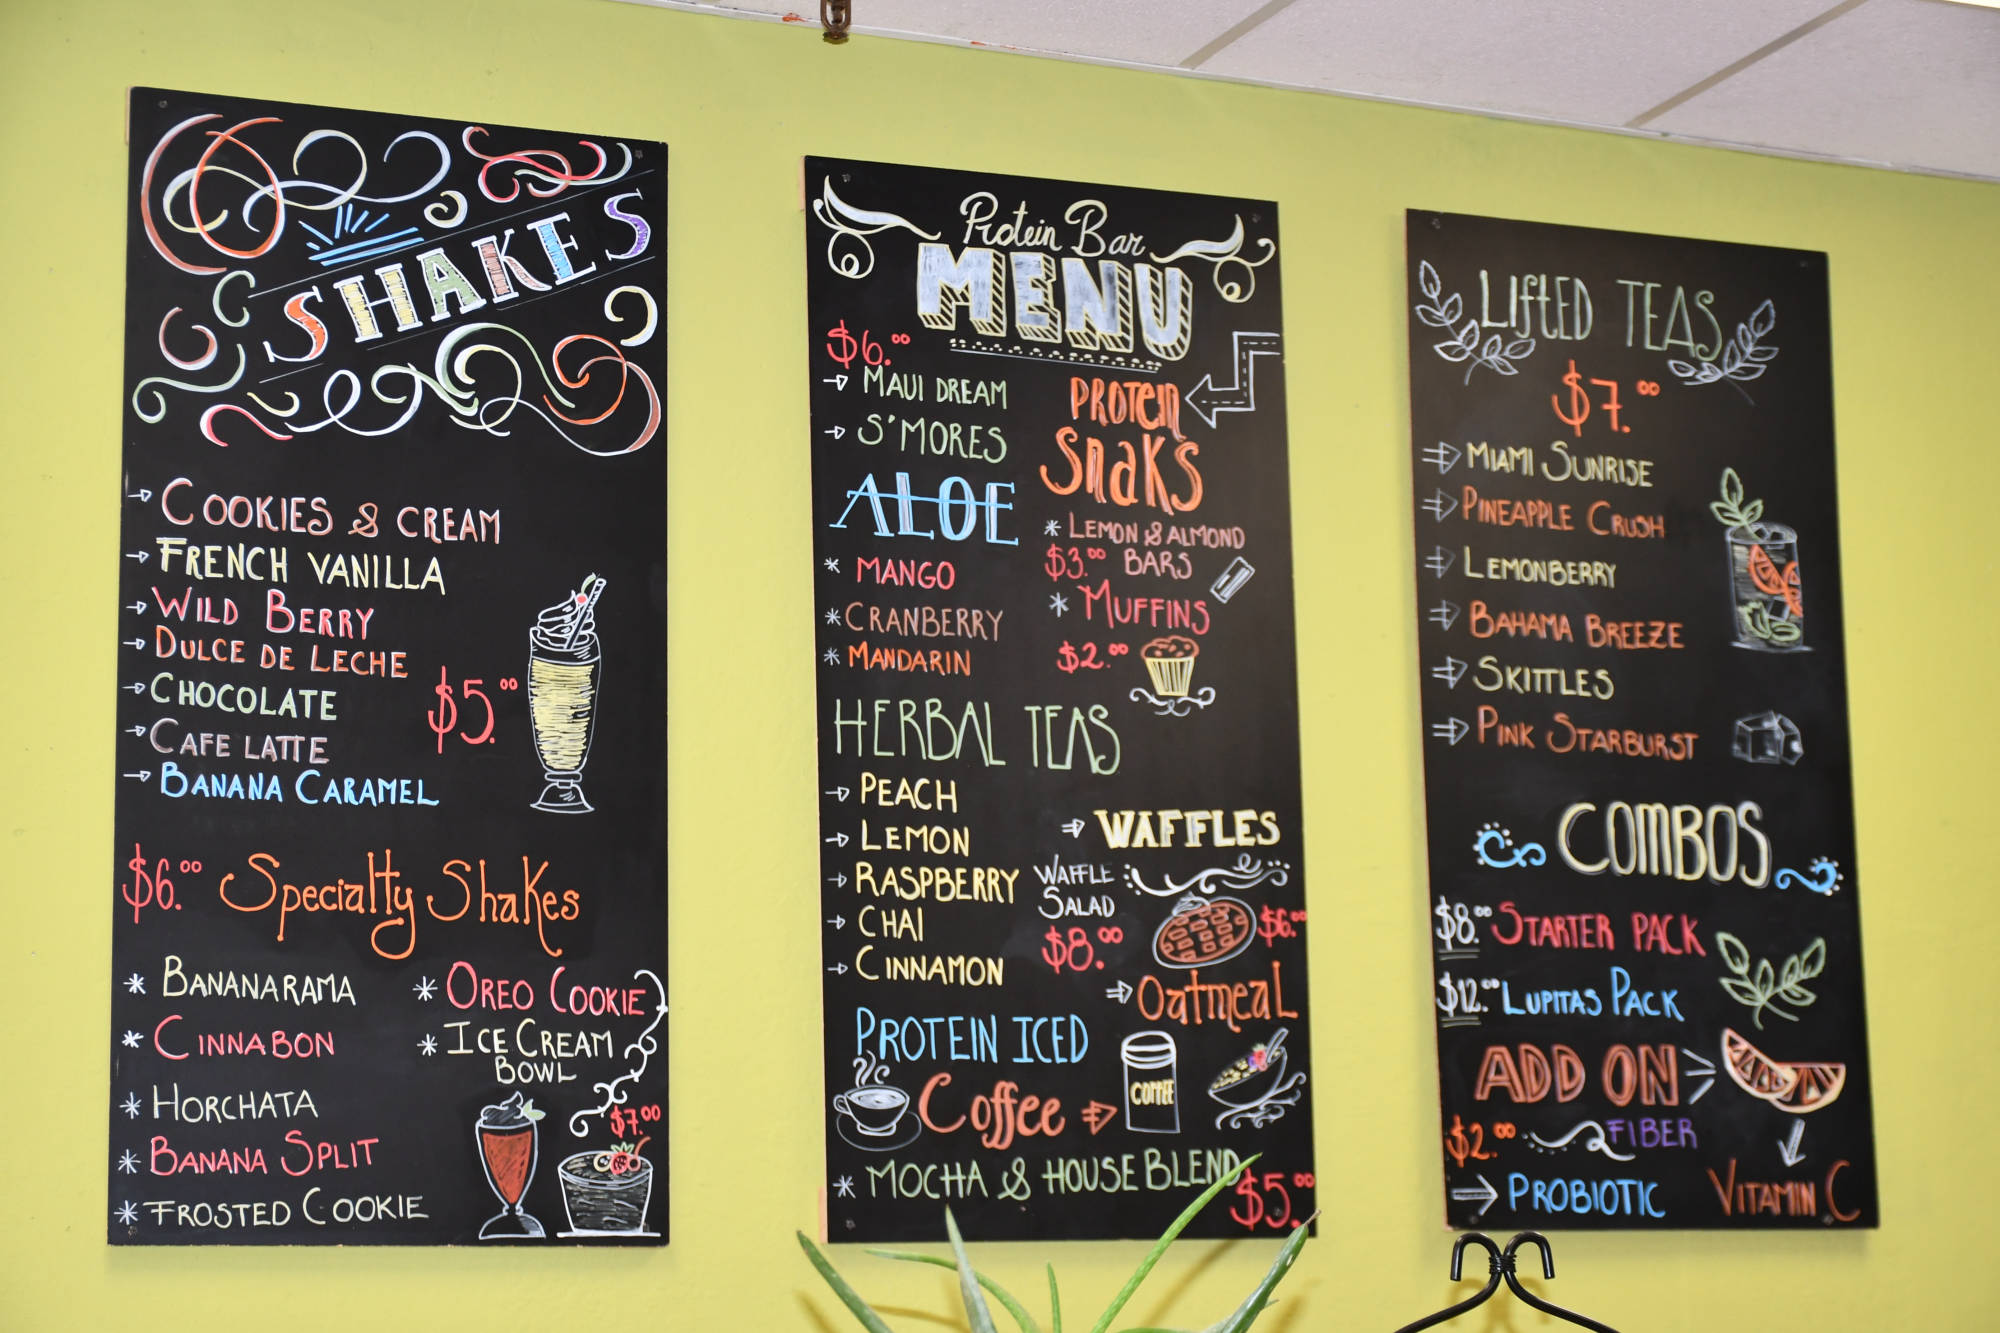 SHAKES
COOKIES & CREAM
FRENCH VANILLA
WILD BERRY
DULCE DE LECHE
CHOCOLATE
$5.00
CAFE LATTE
BANANA CARAMEL
$6.00 Specialty Shakes
BANANARAMA
CINNABON
HORCHATA
BANANA SPLIT
FROSTED COOKIE
OREO COOKIE
ICE CREAM
BOWL
$7.00
Protein Bar
MENU
$6.00
MAUI DREAM
S'MORES
PROTEIN
SNAKS
LEMON & ALMOND
$3.00 BARS
MUFFINS
$2.00
ALOE
MANGO
CRANBERRY
MANDARIN
HERBAL TEAS
PEACH
LEMON
RASPBERRY
CHAI
CINNAMON
WAFFLES
WAFFLE
SALAD
$8.00
$6.00
Oatmeal
PROTEIN ICED
Coffee
COFFEE
MOCHA & HOUSE BLEND
$5.00
LIFTED TEAS
$7.00
MIAMI SUNRISE
PINEAPPLE CRUSH
LEMONBERRY
BAHAMA BREEZE
SKITTLES
PINK STARBURST
COMBOS
$8.00 STARTER PACK
$12.00 LUPITAS PACK
ADD ON
$2.00 FIBER
PROBIOTIC
VITAMIN C